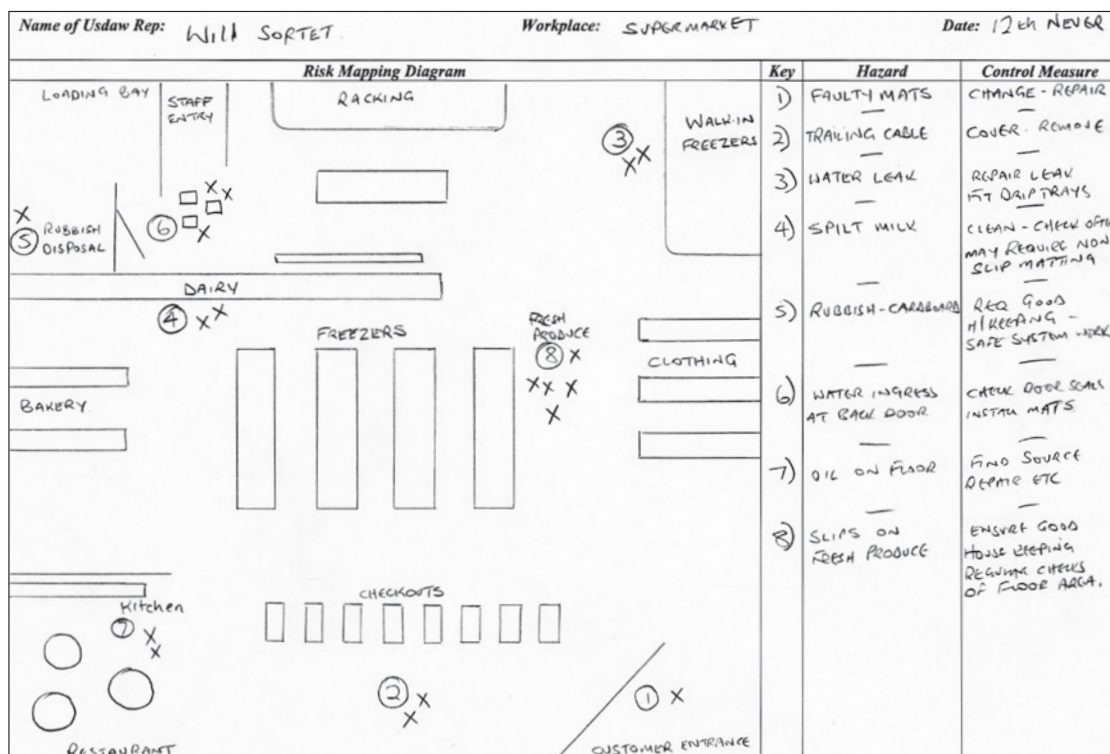 Name of Usdaw Rep: Will SORTET. Workplace: SUPERMARKET Date: 12th NEVER
Risk Mapping Diagram
LOADING BAY
STAFF
ENTRY
RACKING
WALK-IN
FREEZERS
3
X X
X X
X
6
X
5 RUBBISH
DISPOSAL
DAIRY
4 X X
FREEZERS
FRESH
PRODUCE
8 X
X X X
X
CLOTHING
BAKERY.
CHECKOUTS
Kitchen
7 X
X
2 X
X
1 X
RESTAURANT
CUSTOMER ENTRANCE
Key Hazard Control Measure
1) FAULTY MATS CHANGE - REPAIR
2) TRAILING CABLE COVER - REMOVE
3) WATER LEAK REPAIR LEAK
FIT DRIP TRAYS
4) SPILT MILK CLEAN - CHECK OFTEN
MAY REQUIRE NON
SLIP MATTING
5) RUBBISH - CARDBOARD REQ GOOD
H/KEEPING -
SAFE SYSTEM WORK
6) WATER INGRESS CHECK DOOR SEALS
AT BACK DOOR INSTALL MATS
7) OIL ON FLOOR FIND SOURCE
REPAIR ETC
8) SLIPS ON ENSURE GOOD
FRESH PRODUCE HOUSE KEEPING
REGULAR CHECKS
OF FLOOR AREA.